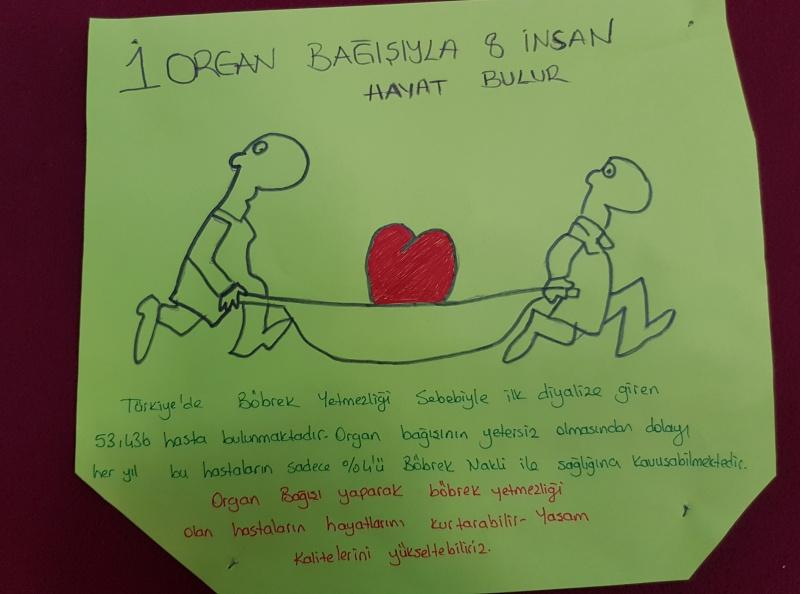 1 ORGAN BAĞIŞIYLA 8 İNSAN
HAYAT BULUR
Türkiye'de Böbrek Yetmezliği Sebebiyle ilk diyalize giren
53,436 hasta bulunmaktadır. Organ bağışının yetersiz olmasından dolayı
her yıl bu hastaların sadece %4'ü Böbrek Nakli ile sağlığına kavuşabilmektedir.
Organ Bağışı yaparak böbrek yetmezliği
olan hastaların hayatlarını kurtarabilir- Yaşam
Kalitelerini yükseltebiliriz.